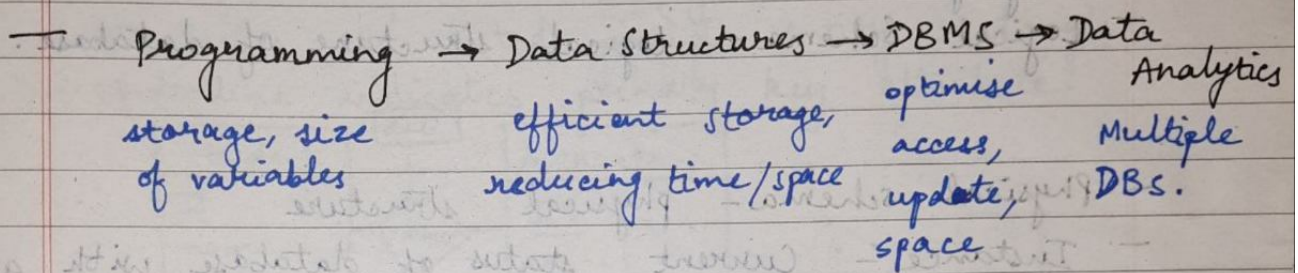 — Programming → Data Structures → DBMS → Data Analytics
storage, size of variables
efficient storage, reducing time/space
optimise access, update, space
Multiple DBs.